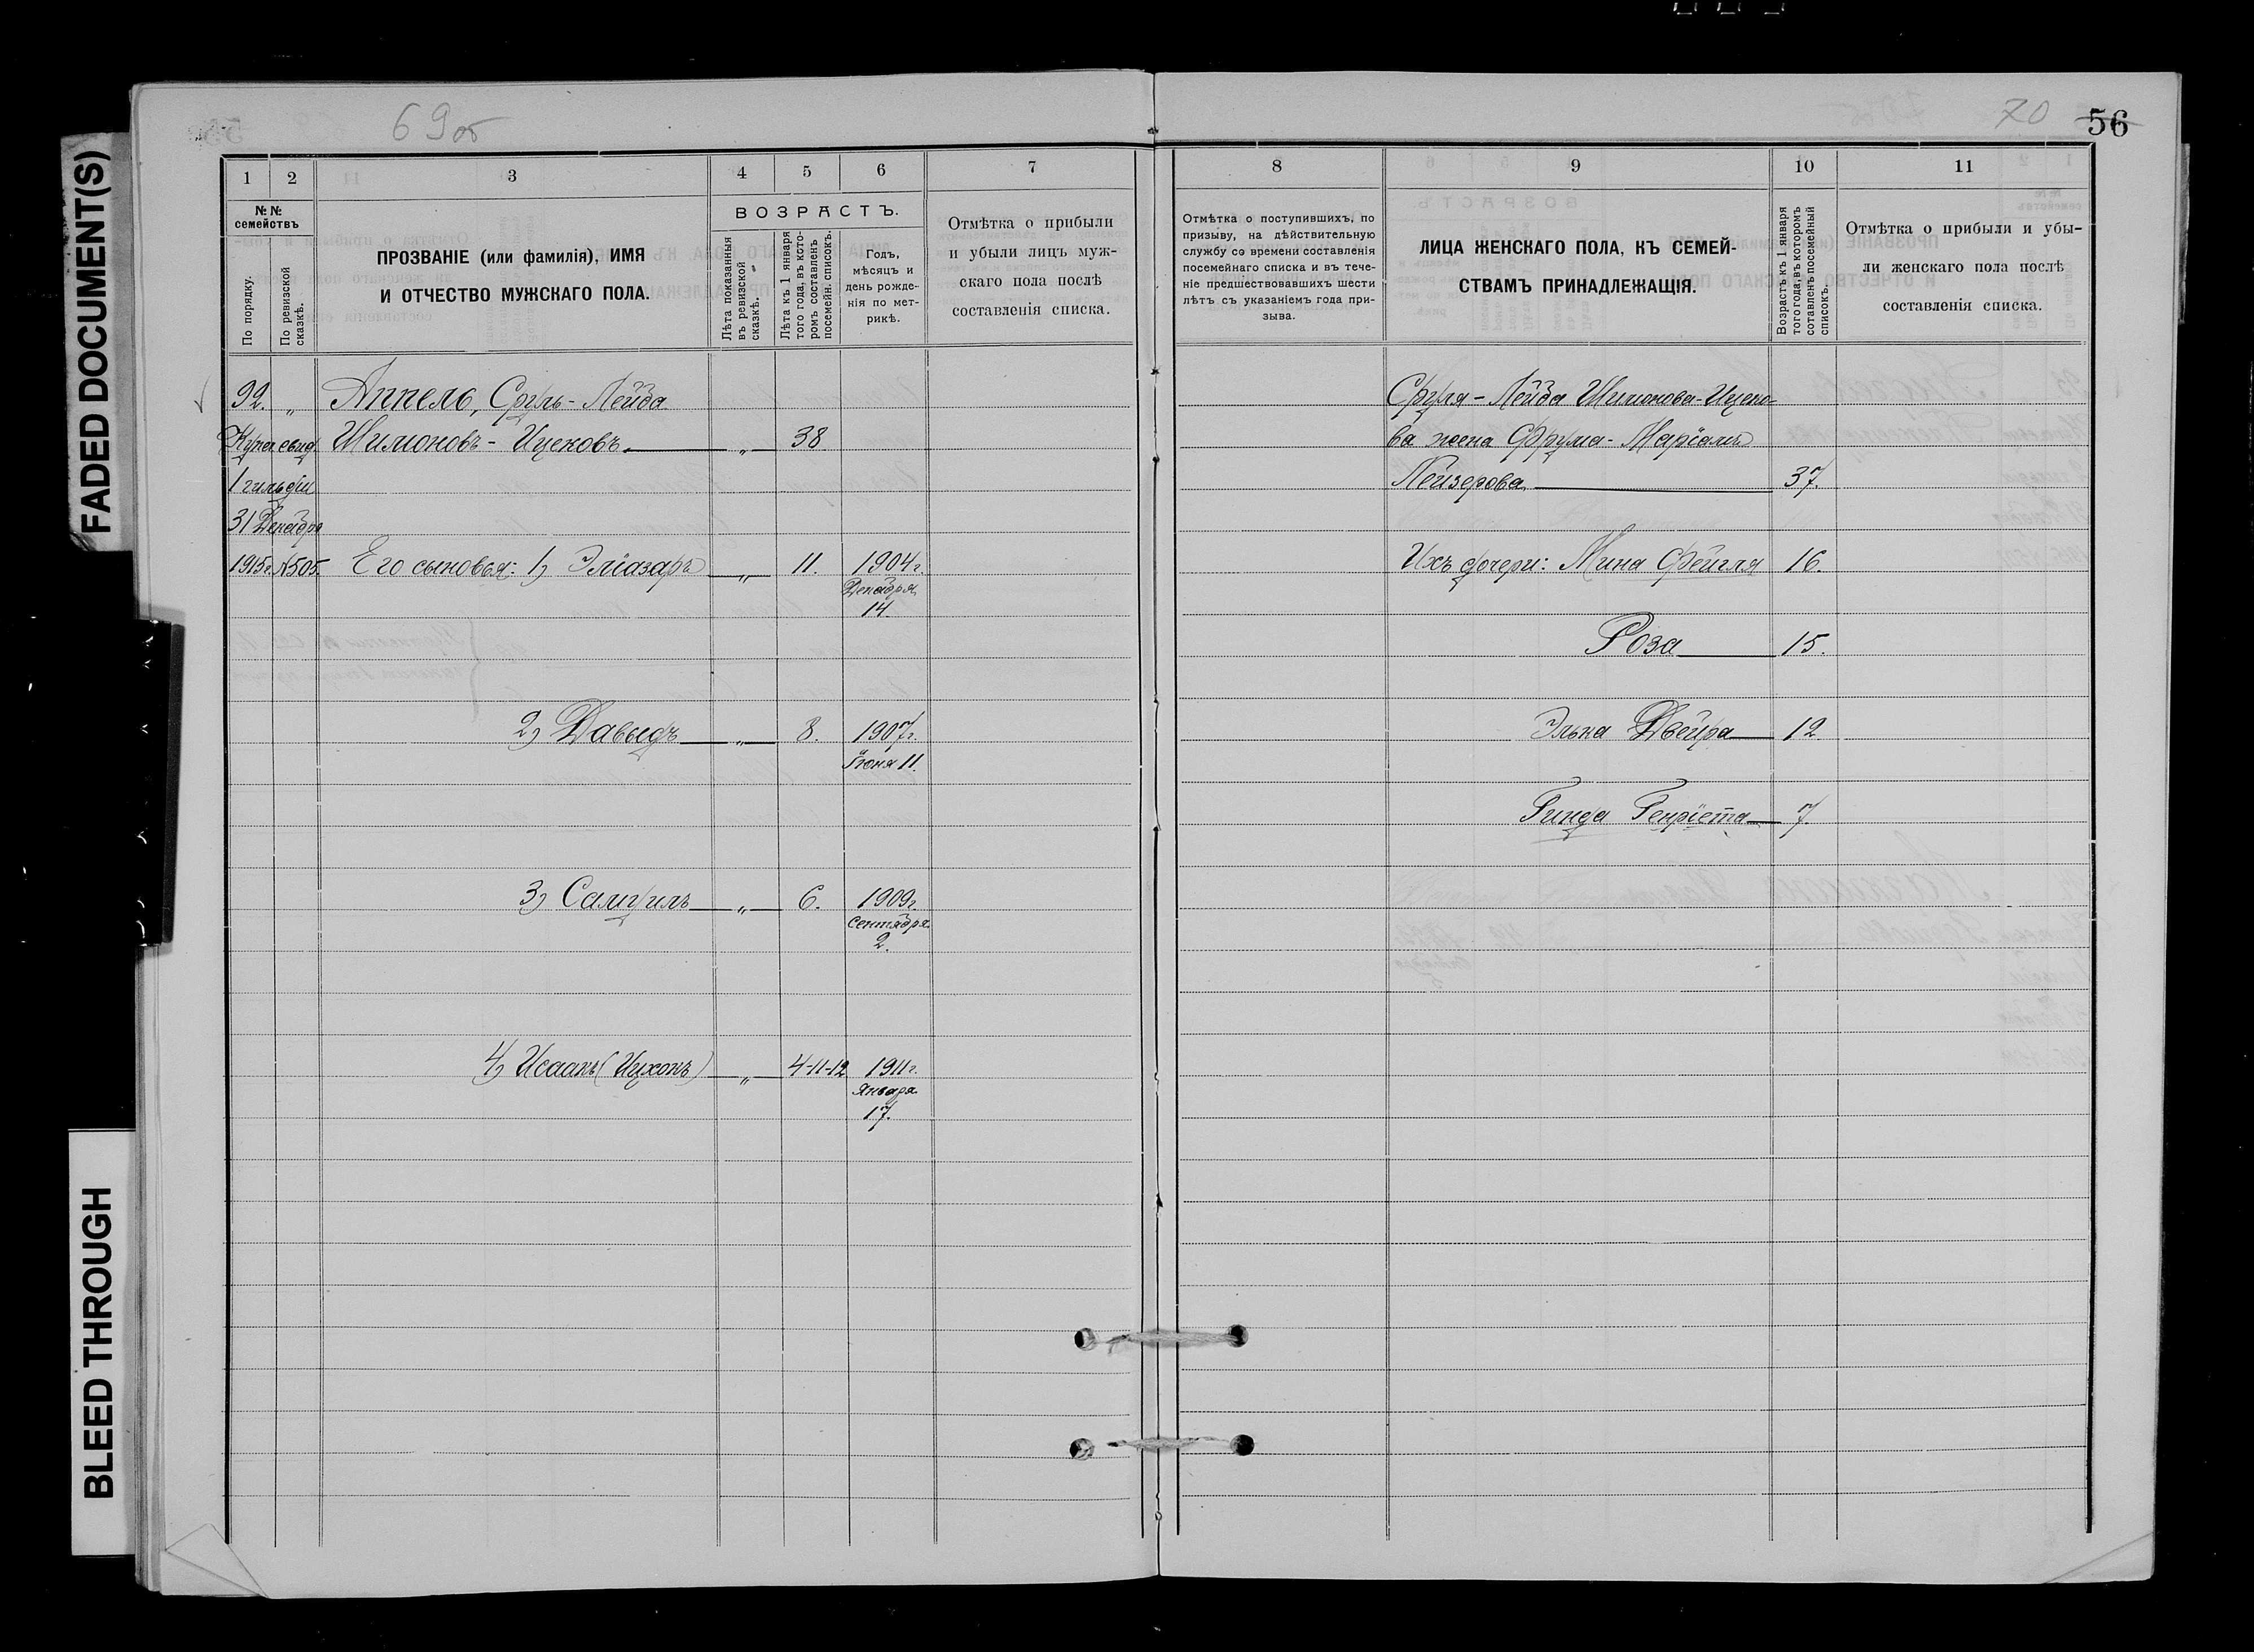 FADED DOCUMENT(S)
BLEED THROUGH
69об
70
56
1 2 3 4 5 6 7
№№ семействъ
По порядку.
По ревизской сказкѣ.
ПРОЗВАНІЕ (или фамилія), ИМЯ
И ОТЧЕСТВО МУЖСКАГО ПОЛА.
ВОЗРАСТЪ.
Лѣта показанныя въ ревизской сказкѣ.
Лѣта къ 1 января того года, въ кото-ромъ составленъ посемейн. списокъ.
Годъ,
мѣсяцъ и
день рожде-
нія по мет-
рикѣ.
Отмѣтка о прибыли
и убыли лицъ муж-
скаго пола послѣ
составленія списка.
92. „ Аппель, Сруль-Лейба
Купеч. свид. Шимоновъ-Ицковъ „ 38
1 гильдіи
31 Декабря
1915г. №505. Его сыновья: 1) Эліазаръ „ 11. 1904г.
Декабря
14.
2) Давыдъ „ 8. 1907г.
Іюня 11.
3) Самуилъ „ 6. 1909г.
Сентября
2.
4) Исаакъ (Ицхокъ) „ 4-11-12 1911г.
Января
17.
8 9 10 11
Отмѣтка о поступившихъ, по
призыву, на дѣйствительную
службу со времени составленія
посемейнаго списка и въ тече-
ніе предшествовавшихъ шести
лѣтъ съ указаніемъ года при-
зыва.
ЛИЦА ЖЕНСКАГО ПОЛА, КЪ СЕМЕЙ-
СТВАМЪ ПРИНАДЛЕЖАЩІЯ.
Возрастъ къ 1 января
того года, въ которомъ
сотавленъ посемейный
списокъ.
Отмѣтка о прибыли и убы-
ли женскаго пола послѣ
составленія списка.
Сруля-Лейба Шимонова-Ицко-
ва жена Фрума-Маріамъ
Лейзерова 37.
Ихъ дочери: Мина Фейгля 16.
Роза 15.
Элька Двейра 12
Гинда Генріета 7.